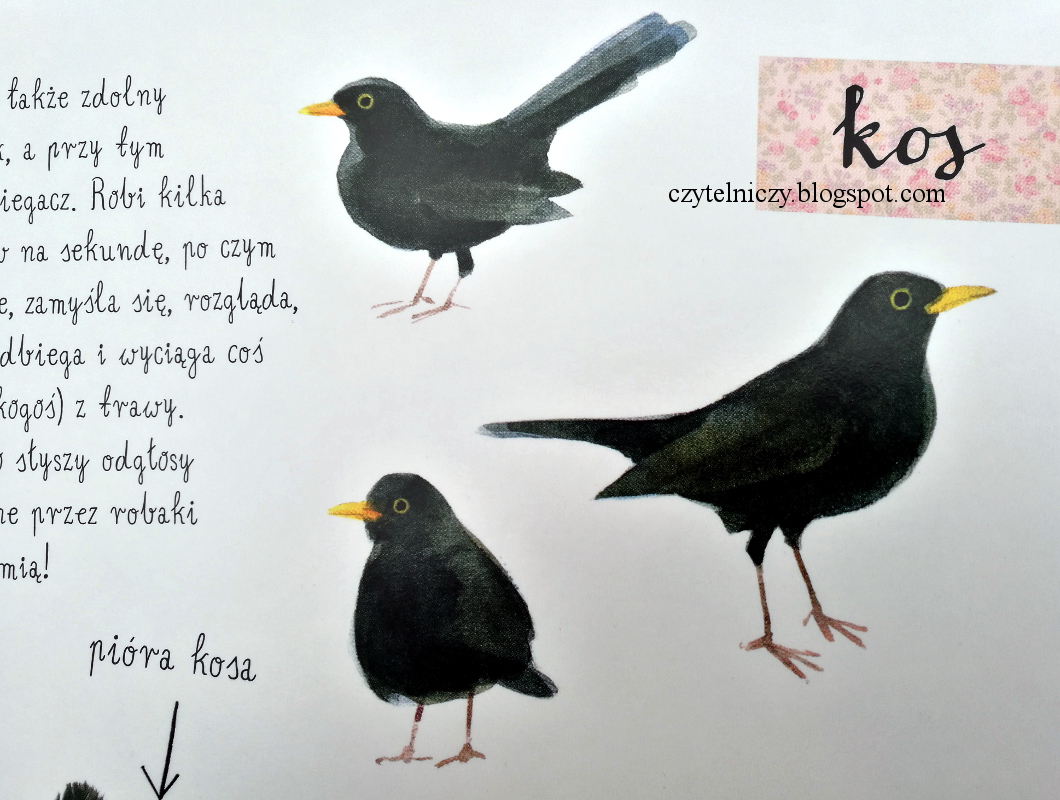 także zdolny
, a przy tym
iegacz. Robi kilka
na sekundę, po czym
e, zamyśla się, rozgląda,
dbiega i wyciąga coś
kogoś) z trawy.
słyszy odgłosy
ne przez robaki
mią!
pióra kosa
kos
czytelniczy.blogspot.com